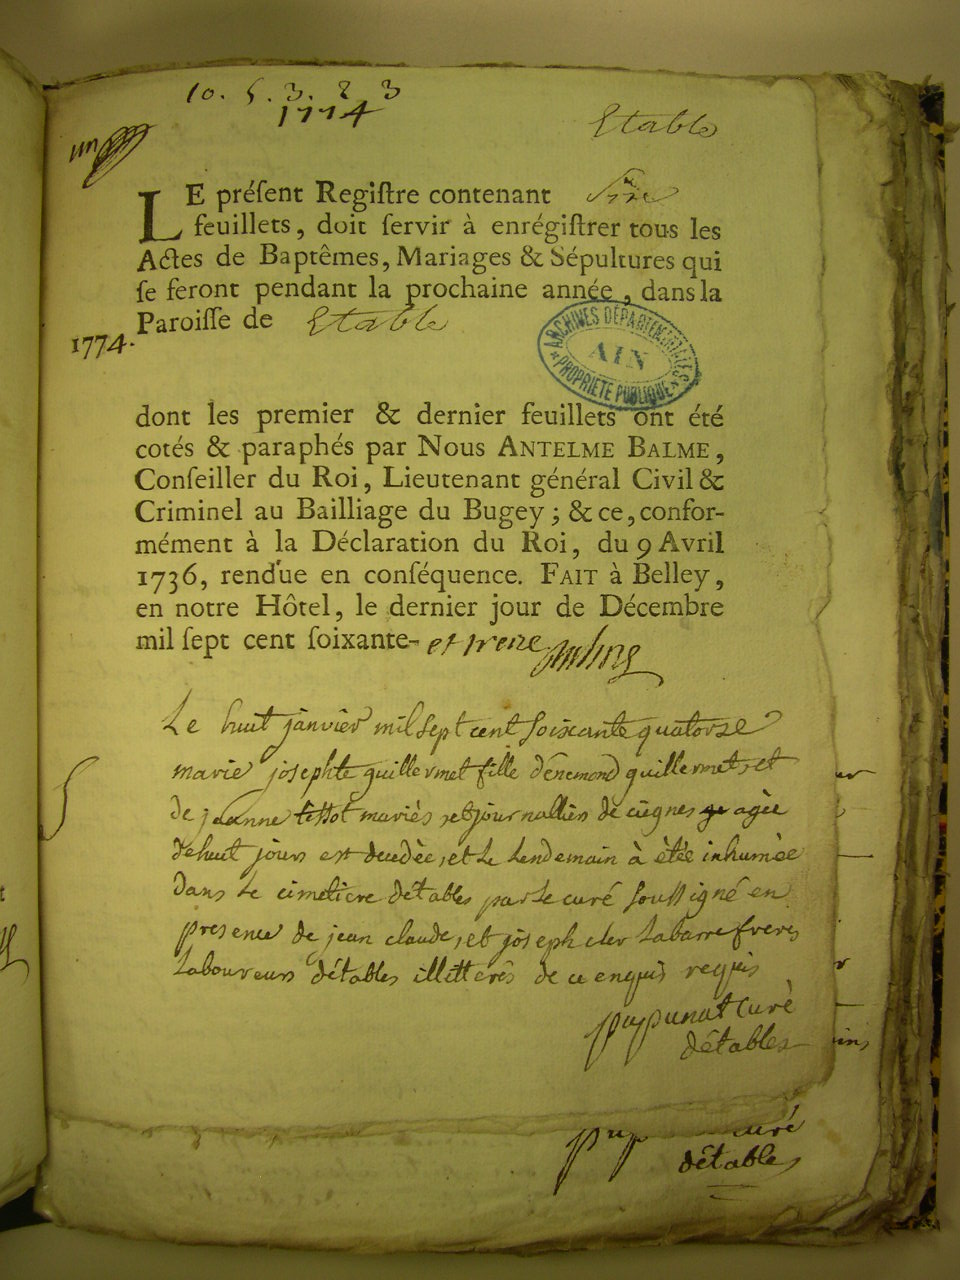 10. 5. 3. 2 3
1774
Etable
un
LE préſent Regiſtre contenant
feuillets, doit ſervir à enrégiſtrer tous les
Actes de Baptêmes, Mariages & Sépultures qui
ſe feront pendant la prochaine année, dans la
Paroiſſe de Etable
1774.
ARCHIVES DÉPARTEMENTALES
AIN
PROPRIÉTÉ PUBLIQUE
dont les premier & dernier feuillets ont été
cotés & paraphés par Nous ANTELME BALME,
Conſeiller du Roi, Lieutenant général Civil &
Criminel au Bailliage du Bugey; & ce, confor-
mément à la Déclaration du Roi, du 9 Avril
1736, rendue en conſéquence. FAIT à Belley,
en notre Hôtel, le dernier jour de Décembre
mil ſept cent ſoixante- et treze
Le huit janvier mil sept cent soixante quatorze
marie josephte guillermet fille dènemond guillermet, et
de jeanne tissot mariés, et journalliers de cùegnes agèe
de huit jours est decedèe, et le lendemain à ètée inhumèe
dans le cimetiere détables par le curé soussigné en
presence de jean claude, et joseph labarre freres
laboureurs détables illitterés de ce enquis requis
puypunat curè
détables
curé
détables